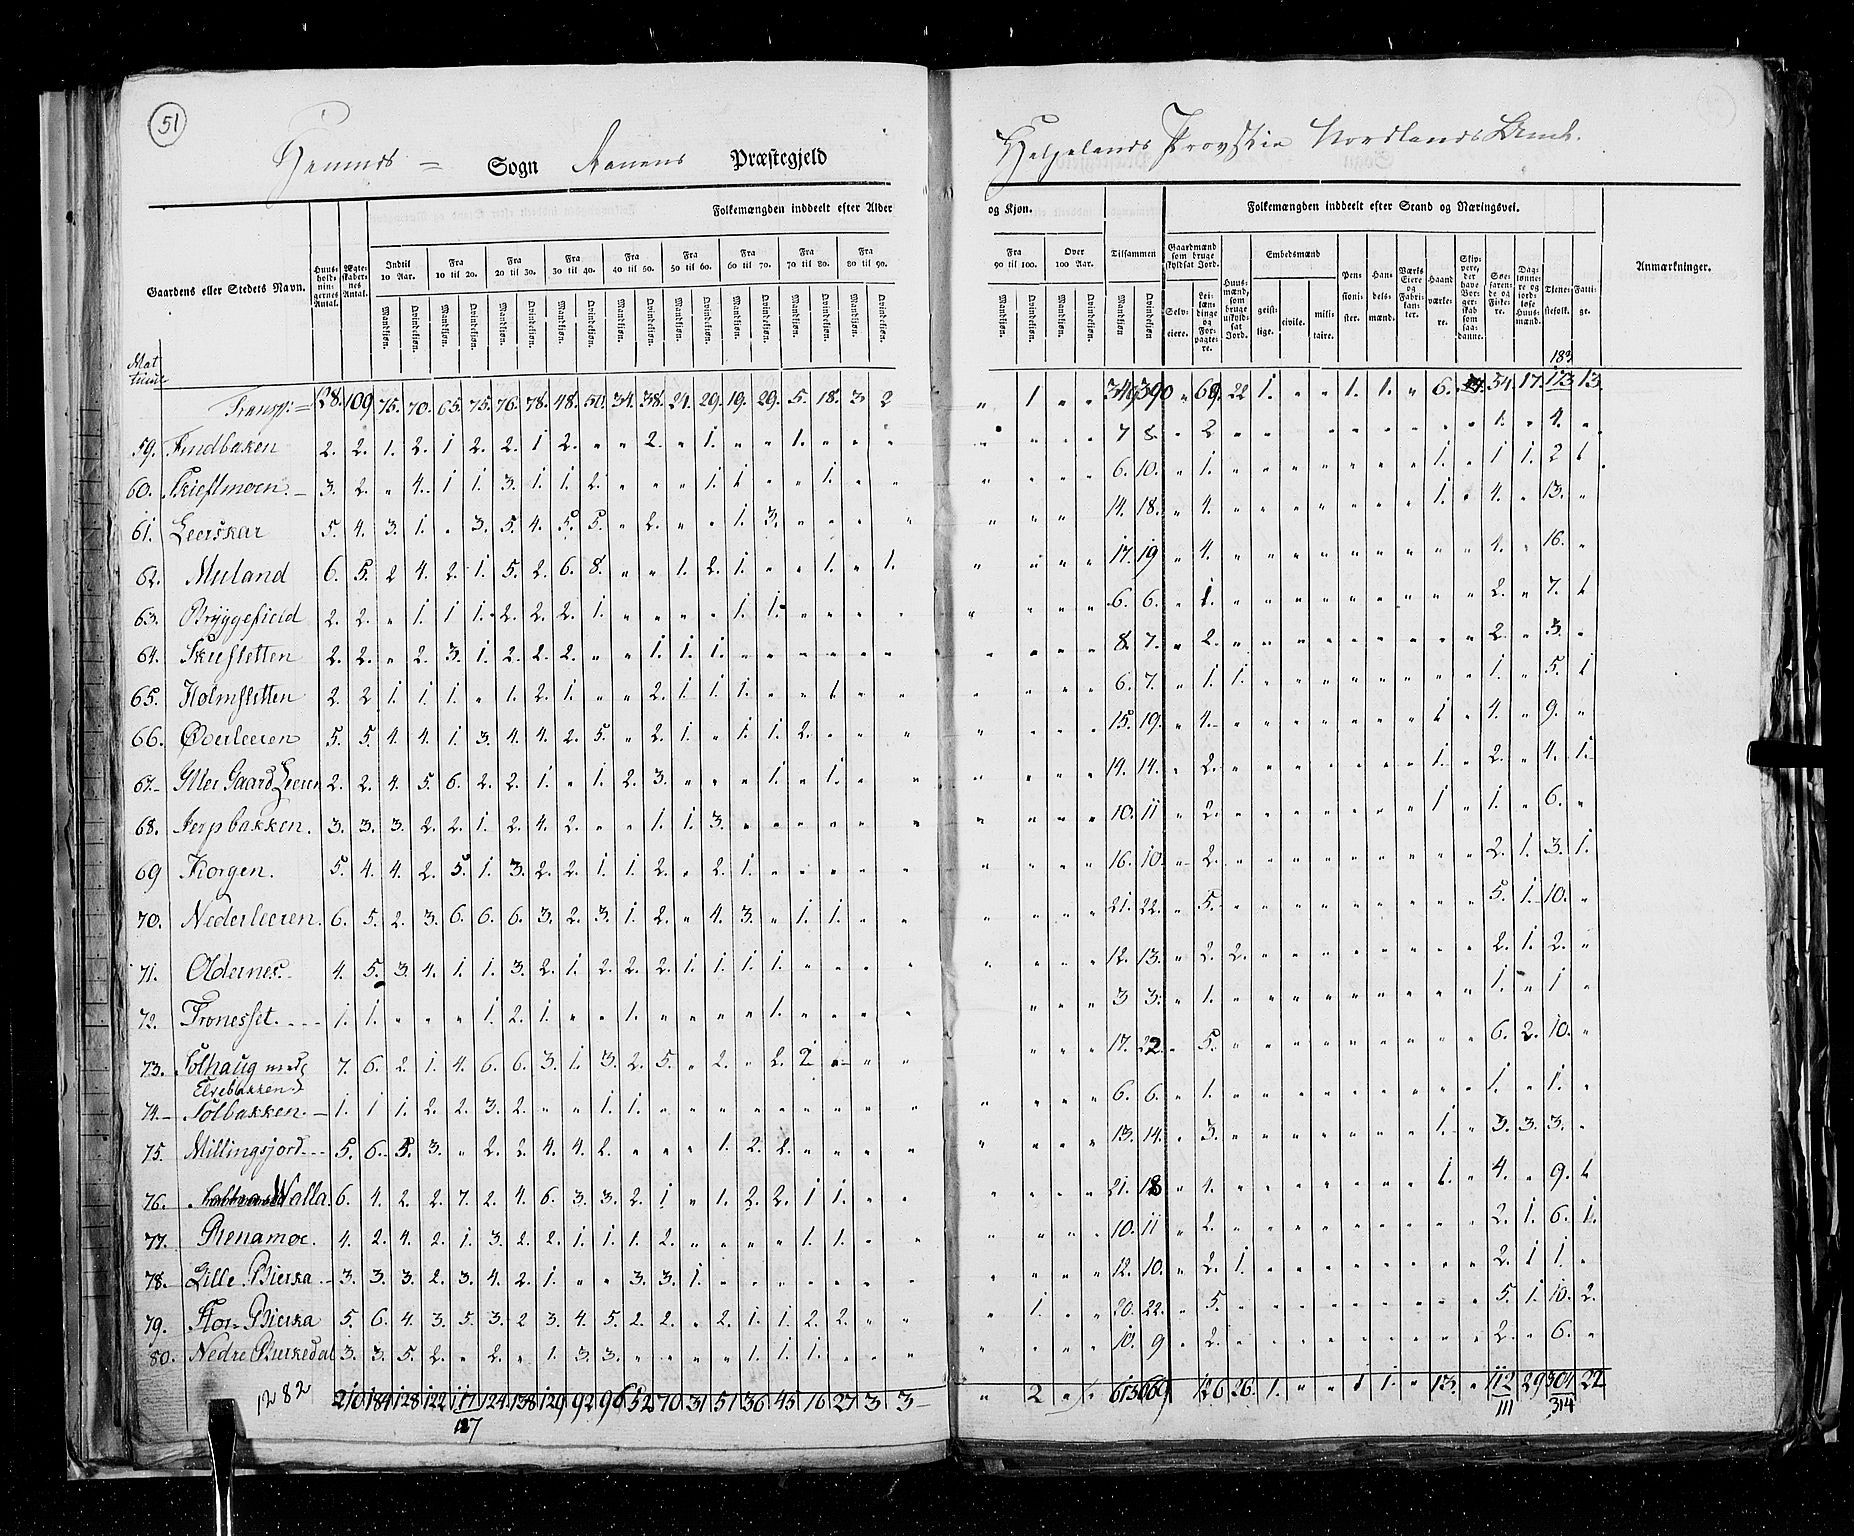 51
Hemnes = Sogn Ranens Præstegjeld
Helgelands Provstie Nordlands Amt.
Gaardens eller Stedets Navn.
Huusholdningernes Antal.
Ægteskabernes Antal.
Folkemængden inddeelt efter Alder
og Kjøn.
Indtil 10 Aar. Fra 10 til 20. Fra 20 til 30. Fra 30 til 40. Fra 40 til 50. Fra 50 til 60. Fra 60 til 70. Fra 70 til 80. Fra 80 til 90.
Fra 90 til 100. Over 100 Aar. Tilsammen
Mandkjøn. Qvindekjøn.
Folkemængden inddeelt efter Stand og Næringsvei.
Gaardmænd som bruge skyldsat Jord.
Selveiere. Leilændinge og Forpagtere.
Huusmænd, som bruge uskyldsat Jord.
Embedsmænd
geistlige. civile. militaire.
Pensionister.
Handelsmænd.
Værks Eiere og Fabrikanter.
Haandværkere.
Skippere, der have Borgerskab som saadanne.
Søefarende og Fiskere.
Daglønnere og jordløse Huusmænd.
Tjenestefolk.
Fattige.
Anmærkninger.
183
Transp: = 128. 109 75. 70. 65. 75. 76. 78. 48. 50. 34. 38. 21. 29. 19. 29. 5. 18. 3. 2 „ 1 „ „ 346 390 „ 69. 22 1. „ „ 1. 1. „ 6. 54. 17. 173. 13.
59. Findbaken 2. 2. 1. 2. 1 2. 2. 1 2. „ „ 2. „ 1. „ „ 1. „ „ „ „ „ „ „ 7 8. „ 2 „ „ „ „ „ „ „ „ „ 1. „ 4. „
60. Skieftmoen. 3. 2. „ 4. 1 1. 3. 1. 1. 2. „ „ „ 1. 1. „ „ 1. „ „ „ „ „ „ 6. 10. „ 1. „ „ „ „ „ „ „ 1. „ 1 1. 2 1.
61. Leerskar 5. 4. 3. 1. „ 3. 5. 4. 5. 5. „ 2. „ „ 1. 3. „ „ „ „ „ „ „ „ 14. 18. „ 4. „ „ „ „ „ „ „ 1. „ 4. „ 13. „
62. Muland 6. 5. 2 4. 2. 1. 5. 2. 6. 8. „ „ 1. 2. 1. „ „ 1. „ 1. „ „ „ „ 17. 19 „ 4. „ „ „ „ „ „ „ „ „ 4. „ 16. „
63. Bryggefield 2. 2. „ 1. 1 1. 2. 2. 2. 1. „ „ „ „ 1. 1. „ „ „ „ „ „ „ „ 6. 6. „ 1. „ „ „ „ „ „ „ „ „ 2. „ 7. 1
64. Skiefletten 2. 2. „ 2. 3. 1. 2. 2. 2. „ „ 1. 1. 1. „ „ „ „ „ „ „ „ „ „ 8. 7. „ 2. „ „ „ „ „ „ „ „ „ 2. „ 3. „
65. Holmsletten 2. 2 1. 1. 1. „ 1. 2. 1. „ „ 2. 1. 1. 1. „ „ 1. „ „ „ „ „ „ 6. 7. „ 1. 1. „ „ „ „ „ „ „ „ 1. „ 5. 1
66. Øverleeren 5. 5. 4. 4. 1. 3. 4. 4. 2. 5. „ 2. 1. „ 1. 1. 2. „ „ „ „ „ „ „ 15. 19. „ 4. „ „ „ „ „ „ „ 1. „ 4. „ 9. „
67. Ytter Gaard Leeren 2. 2. 4. 5. 6. 2. 2. 1. „ 1. 2. 3. „ „ „ 1. „ 1. „ „ „ „ „ „ 14. 14. „ 2. „ „ „ „ „ „ „ 1. „ 2. „ 4. 1.
68. Jerpbakken. 3. 3. 3. 2. 2. 1. 2. 4. 2. „ „ 1. 1. 3. „ „ „ „ „ „ „ „ „ „ 10. 11 „ 2. „ „ „ „ „ „ „ 1 „ 1. „ 6. „
69 Korgen. 5. 4. 4. 2. 5. 1. 3. 2. 2. 1. 1. 2. „ 2. 1. „ „ „ „ „ „ „ „ „ 16. 10. „ 2. „ „ „ „ „ „ „ „ „ 2. 1. 3. 1.
70. Nederleeren. 6. 5. 2. 3. 6. 6. 6. 3. 2. 3. 1. 2. „ 4. 3. „ 1. 1. „ „ „ „ „ „ 21. 22. „ 5. „ „ „ „ „ „ „ „ „ 5. 1. 10. „
71. Oldernes. 4. 5. 3. 4. 1. 1. 3. 2. 1. 2. 2. 2. 1. 1. 1. 1. „ „ „ „ „ „ „ „ 12. 13. „ 2. 2. „ „ „ „ „ „ „ „ 2. 1. 2. „
72. Tronesset. 1. 1. „ „ „ 1. 2. 1. „ „ 1. „ „ „ „ 1. „ „ „ „ „ „ „ „ 3 3. „ 1. „ „ „ „ „ „ „ „ „ 1. „ 1 „
73. Solhaug med Elvebakken 7. 6. 2. 1. 4. 6. 6. 3. 1. 3. 2. 5. „ 2. „ 2. 2 „ „ „ „ „ „ „ 17. 22. „ 5. „ „ „ „ „ „ „ „ „ 6. 2. 10. „
74. Solbakken. 1. 1 1. 2. 2. 3. 2. „ „ 1. 1. „ „ „ „ „ „ „ „ „ „ „ „ „ 6. 6. „ 1. „ „ „ „ „ „ „ „ „ 1. „ 1. „
75. Millingsjord 5. 6. 5. 3. „ 2. 2. 4. 4. 2. „ „ „ 1. 2. 2. „ „ „ „ „ „ „ „ 13. 14. „ 3. „ „ „ „ „ „ „ 1. „ 3. 3. 3. „
76. Walla. 6. 4. 2. 2. 7. 2. 4. 6. 3. 3. 2. 1 „ 1. 2. 2. 1 1. „ „ „ „ „ „ 21. 18 „ 4. „ „ „ „ „ „ „ 1. „ 4. „ 9. 1
77. Renamoe. 4. 2. 4. 2. 1. 3. 2. 2. 1. 1. 1. 2. „ „ „ „ 1. 1. „ „ „ „ „ „ 10. 11 „ 2. „ „ „ „ „ „ „ „ „ 2. 1. 6. 1.
78. Lille Bierka 3. 3. 3. 2. 3. 4. 2. 1. „ „ 3. 3. 1. „ „ „ „ „ „ „ „ „ „ „ 12. 10. „ 2. 1. „ „ „ „ „ „ „ „ 2. 1 1. „
79. Stor Bierka 5. 6. 4. 3. 5. 3. 2 3. 4. 5. 2. 2. „ 2. 1. 1. 2. 2. „ „ „ 1. „ „ 20. 22. „ 5. „ „ „ „ „ „ „ „ „ 5. 1. 10. 2.
80. Nedre Birkedal 3. 3. 5. 2. „ 2. „ 1. 3. 3. „ „ „ „ 1. 1. 1. „ „ „ „ „ „ „ 10. 9 „ 2. „ „ „ „ „ „ „ „ „ 2. „ 6. „
1282 210 184 128 122 117 124 138 129 92 96 52 70 31 51 36 45 16 27 3 3 „ 2 „ „ 613 669 „ 126 26. 1. „ „ 1 1. „ 13. „ 112 29 304 22
127 111 314